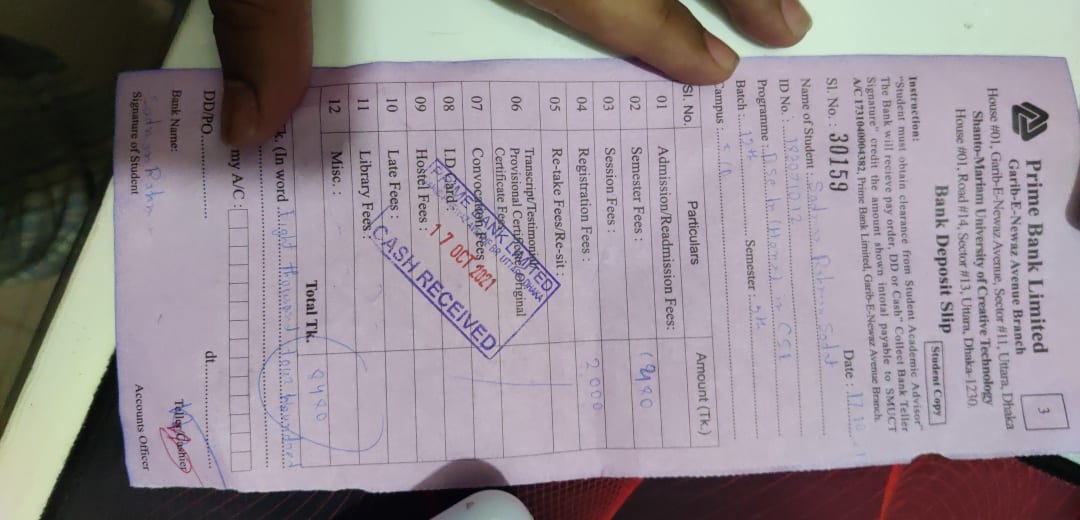 3
Prime Bank Limited
Garib-E-Newaz Avenue Branch
House #01, Garib-E-Newaz Avenue, Sector #11, Uttara, Dhaka
Shanto-Mariam University of Creative Technology
House #01, Road #14, Sector #13, Uttara, Dhaka-1230.
Bank Deposit Slip
Student Copy
Instruction:
"Student must obtain clearance from Student Academic Advisor"
The Bank will recieve pay order, DD or Cash" Collect Bank Teller
Signature" credit the amount shown intotal payable to SMUCT
A/C 1731040004382, Prime Bank Limited, Garib-E-Newaz Avenue Branch.
Sl. No. : 30159 Date :
Name of Student : Sadman Rahman Sadat
ID No. :
Programme : B.Sc in (Hons) in CSE
Batch : Semester :
Campus :
Sl. No. Particulars Amount (Tk.)
01 Admission/Readmission Fees:
02 Semester Fees :
03 Session Fees :
04 Registration Fees : 2000
05 Re-take Fees/Re-sit :
06 Transcript/Testimonial
Provisional Certificate/Original
Certificate Fees
07 Convocation Fees :
08 I.D Card :
09 Hostel Fees :
10 Late Fees :
11 Library Fees :
12 Misc. :
PRIME BANK LIMITED
17 OCT 2021
CASH RECEIVED
Total Tk. 8480
k. (In word Eight thousand four hundred
my A/C :
DD/PO. dt.
Bank Name: Teller/Cashier
Sadman Rahm
Signature of Student Accounts Officer